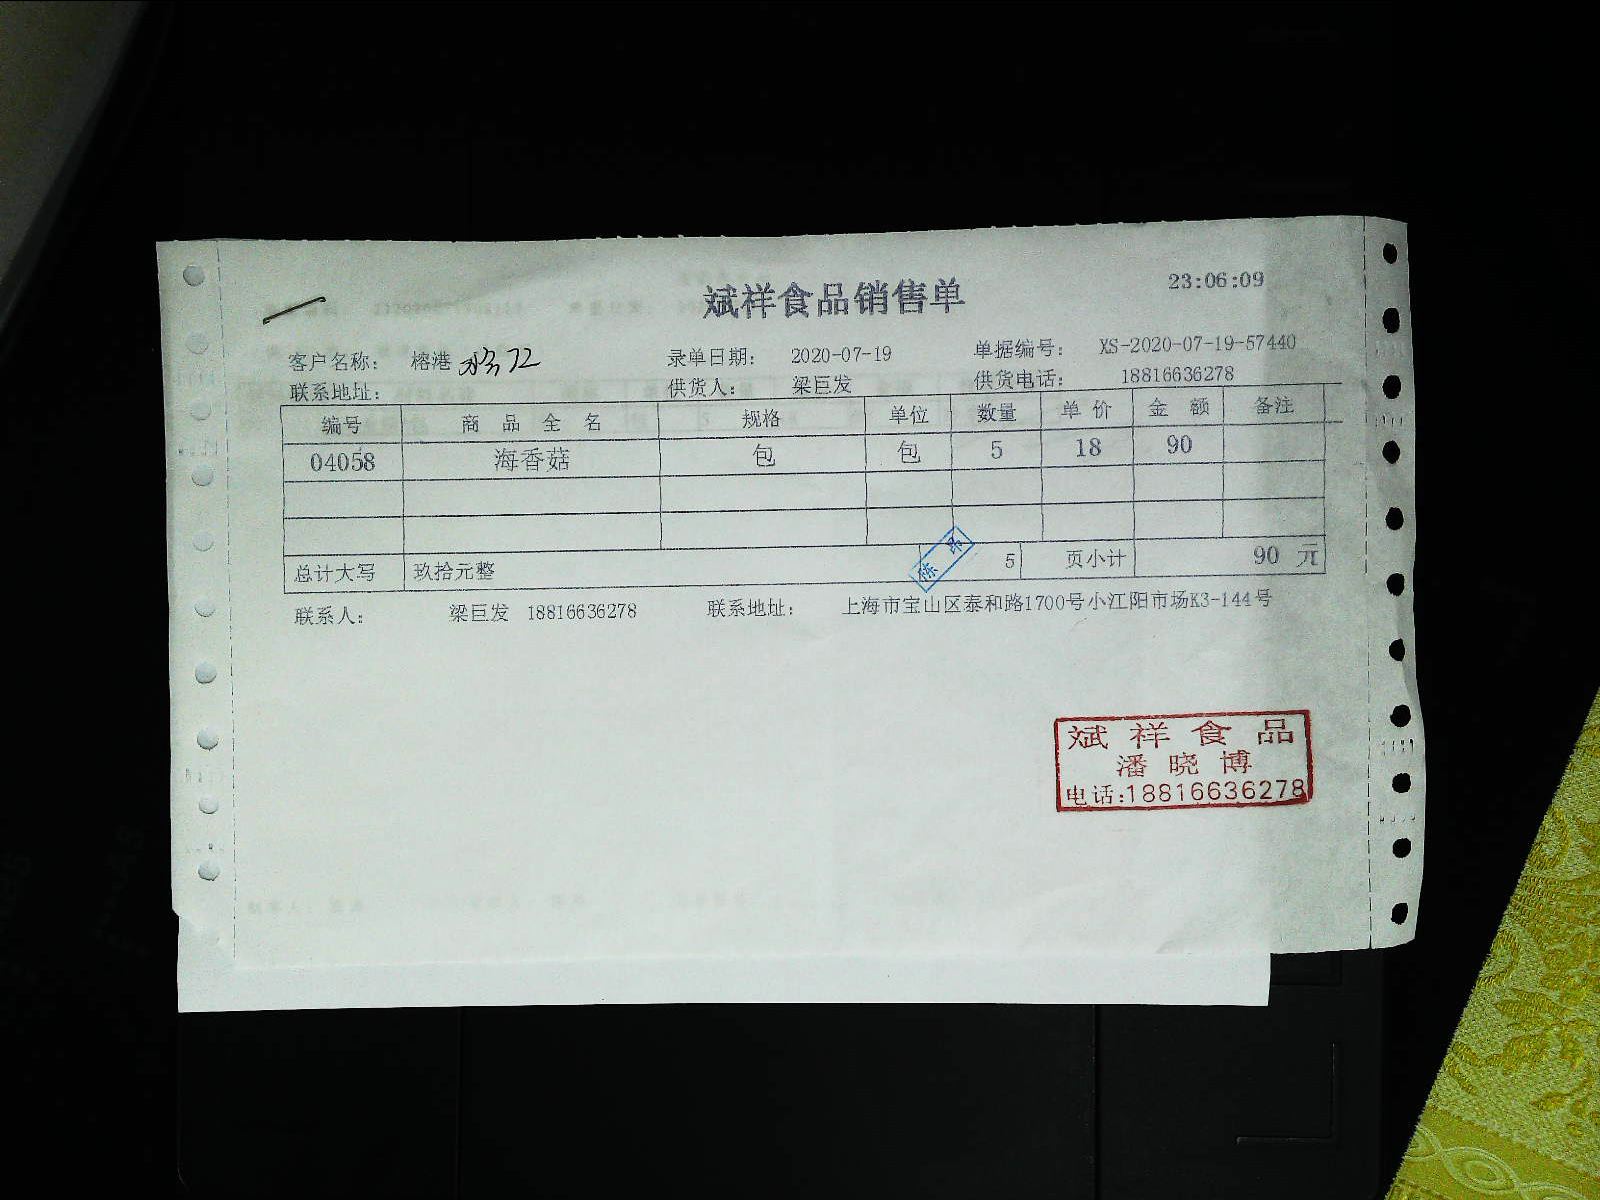 23:06:09
斌祥食品销售单
客户名称： 榕港 录单日期： 2020-07-19 单据编号： XS-2020-07-19-57440
联系地址： 供货人： 梁巨发 供货电话： 18816636278
编号 商品全名 规格 单位 数量 单价 金额 备注
04058 海香菇 包 包 5 18 90
总计大写 玖拾元整 5 页小计 90 元
联系人： 梁巨发 18816636278 联系地址： 上海市宝山区泰和路1700号小江阳市场K3-144号
斌祥食品
潘晓博
电话:18816636278